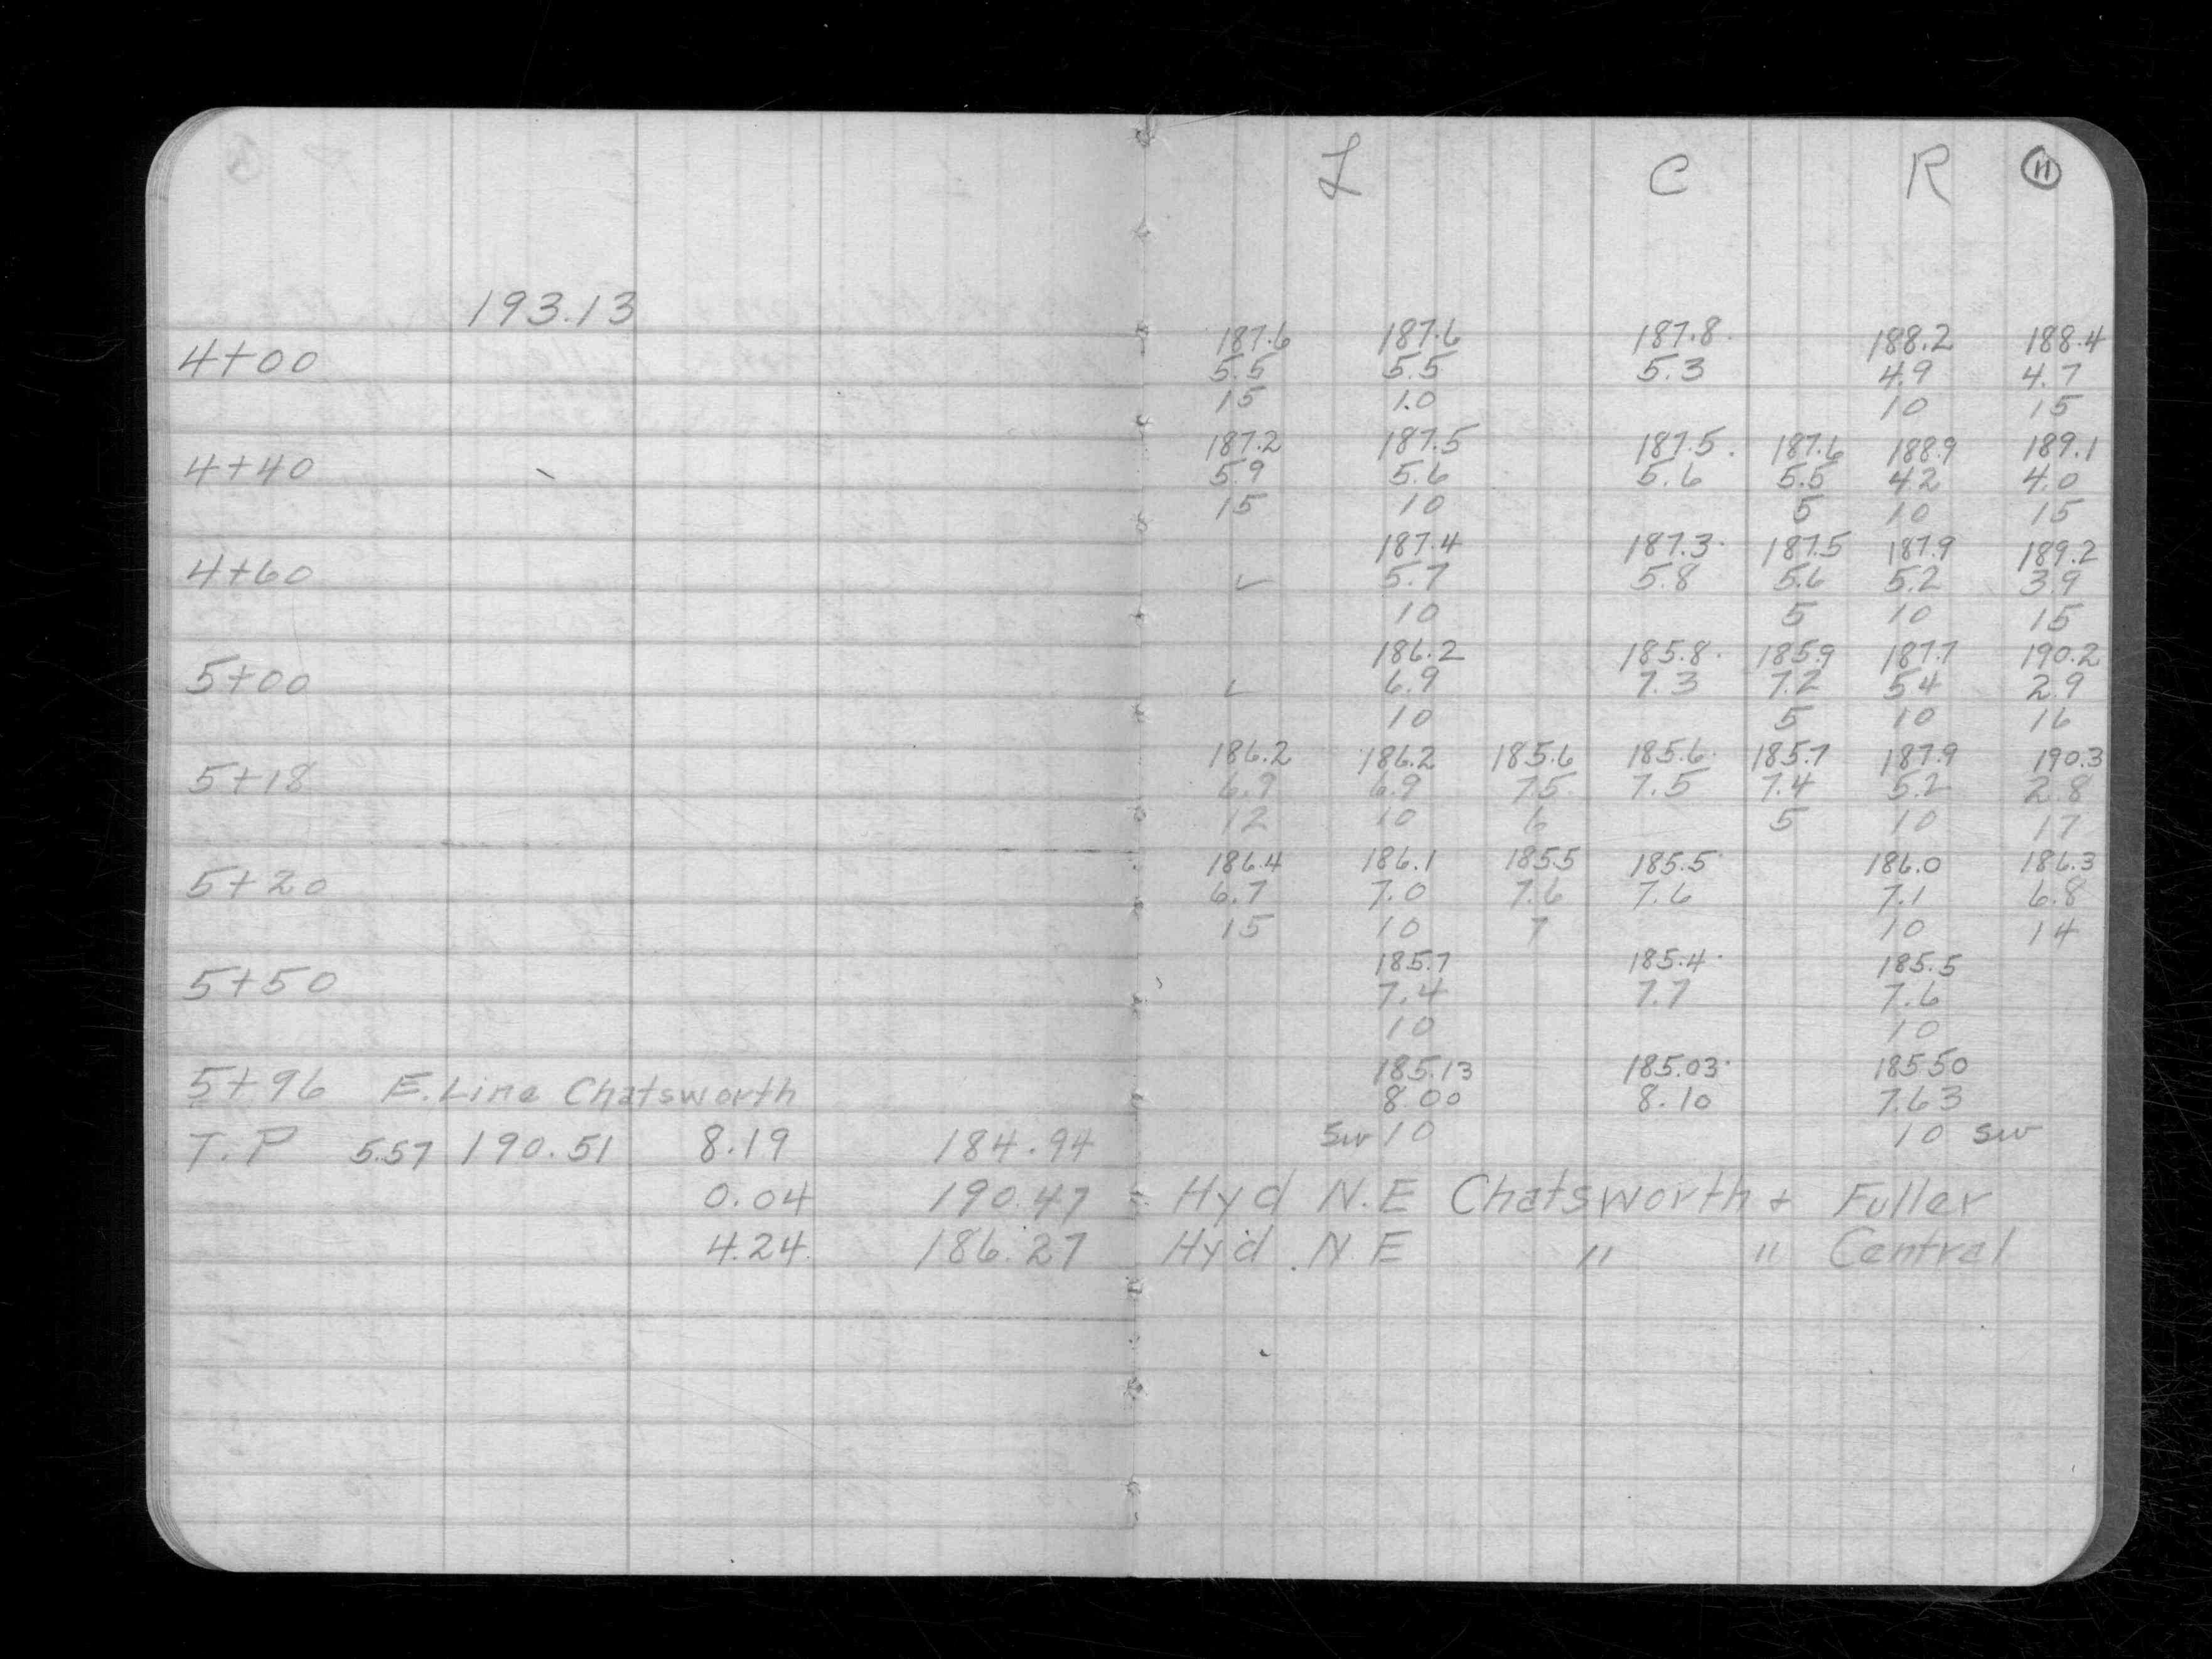 L C R 11
193.13
187.6 187.6 187.8 188.2 188.4
4+00 5.5 5.5 5.3 4.9 4.7
15 10 10 15
187.2 187.5 187.5 187.6 188.9 189.1
4+40 5.9 5.6 5.6 5.5 4.2 4.0
15 10 5 10 15
187.4 187.3 187.5 187.9 189.2
4+60 ✓ 5.7 5.8 5.6 5.2 3.9
10 5 10 15
186.2 185.8 185.9 187.7 190.2
5+00 ✓ 6.9 7.3 7.2 5.4 2.9
10 5 10 16
186.2 186.2 185.6 185.6 185.7 187.9 190.3
5+18 6.9 6.9 7.5 7.5 7.4 5.2 2.8
12 10 6 5 10 17
186.4 186.1 185.5 185.5 186.0 186.3
5+20 6.7 7.0 7.6 7.6 7.1 6.8
15 10 7 10 14
185.7 185.4 185.5
5+50 7.4 7.7 7.6
10 10
185.13 185.03 185.50
5+96 E. Line Chatsworth 8.00 8.10 7.63
T.P 5.57 190.51 8.19 184.94 SW 10 10 SW
0.04 190.47 Hyd N.E Chatsworth + Fuller
4.24 186.27 Hyd. N E " " Central